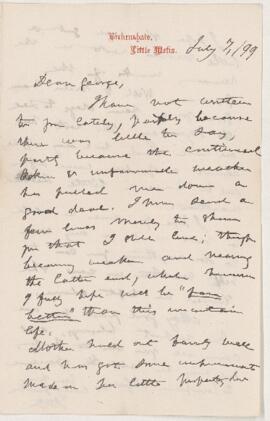 Birkenshaw,
Little Metis.
July 7, /99
Dear George,
I have not written
to you lately, partly because
there was little to say,
partly because the continued
of unfavourable weather
has pulled me down a
good deal. I now send a
few lines merely to show
you that I still live; though
becoming weaker and nearing
the latter end, which however
I fully hope will be "far
better" than this uncertain
life.
Mother held out fairly well
and has got some improvements
made on her little property, her